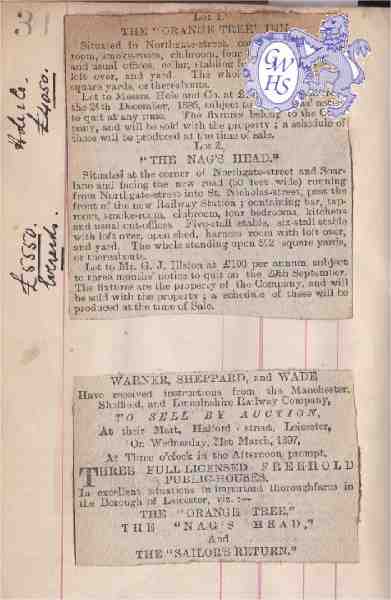 Lot 1.
THE "ORANGE TREE" INN
Situated in Northgate-street,
room, smoke-room, clubroom, four
and usual offices, cellar, stabling
loft over, and yard. The whole
square yards, or thereabouts.
Let to Messrs. Hole and Co. at
the 24th December, 1896, subject to notice
to quit at any time. The fixtures belong to the
pany, and will be sold with the property; a schedule of
these will be produced at the time of sale.
Lot 2.
"THE NAG'S HEAD."
Situated at the corner of Northgate-street and Soar-
lane and facing the new road (50 feet wide) running
from Northgate-street into St. Nicholas-street, past the
front of the new Railway Station; containing bar, tap-
room, smoke-room, clubroom, four bedrooms, kitchens
and usual out-offices. Five-stall stable, six-stall stable
with loft over, open shed, harness room with loft over,
and yard. The whole standing upon square yards,
or thereabouts.
Let to Mr. G. J. Illston at £100 per annum, subject
to three months' notice to quit on the 29th September.
The fixtures are the property of the Company, and will
be sold with the property; a schedule of these will be
produced at the time of Sale.
Hole & Co.
£4050.
£5550.
GWHS
WARNER, SHEPPARD, and WADE
Have received instructions from the Manchester,
Sheffield, and Lincolnshire Railway Company,
TO SELL BY AUCTION,
At their Mart, Halford-street, Leicester,
On Wednesday, 31st March, 1897,
At Three o'clock in the Afternoon prompt,
THREE FULL-LICENSED FREEHOLD
PUBLIC-HOUSES,
In excellent situations in important thoroughfares in
the Borough of Leicester, viz.:—
THE "ORANGE TREE,"
THE "NAG'S HEAD,"
And
THE "SAILOR'S RETURN."